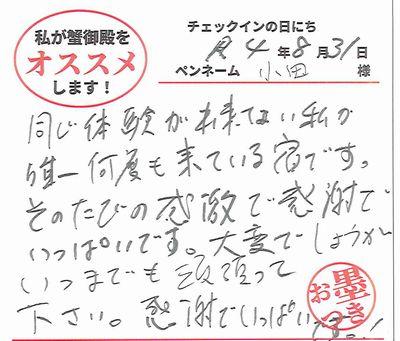 私が蟹御殿を
オススメ
します！
チェックインの日にち
R4年8月31日
ペンネーム 小田 様
同じ体験が出来てない私が
唯一何度も来ている宿です。
そのたびの感激で感謝で
いっぱいです。大変でしょうが
いつまでも頑張って
下さい。感謝でいっぱいです。！
お墨つき